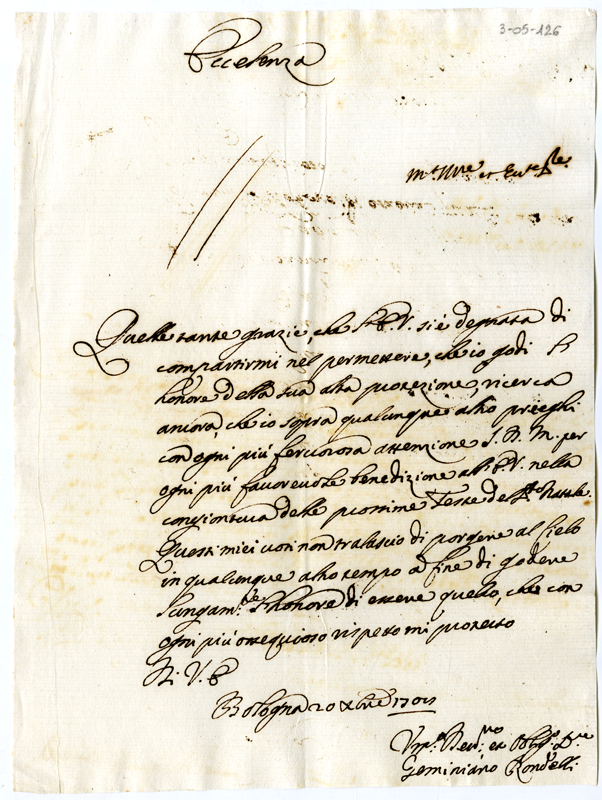 3-05-126
Eccelenza
Quelle tante grazie, che l'E.V. si è degnata di
compartirmi nel permettere, che io godi l'
honore della sua alta protezione, ricerca
ancora, che io sopra qualunque altro preghi
con ogni più fervorosa attenzione S. D. M. per
ogni più favorevole benedizione all'E.V. nella
congiontura delle prossime Feste del Sto Natale.
Questi miei voti non tralascio di porgere al Cielo
in qualunque altro tempo a fine di godere
lungam.te l'honore di essere quello, che con
ogni più ossequioso rispetto mi protesto
Di V. E.
Bologna 20 Xbre
Um.o Dev.mo et Obbl.o S.re
Geminiano Rondelli